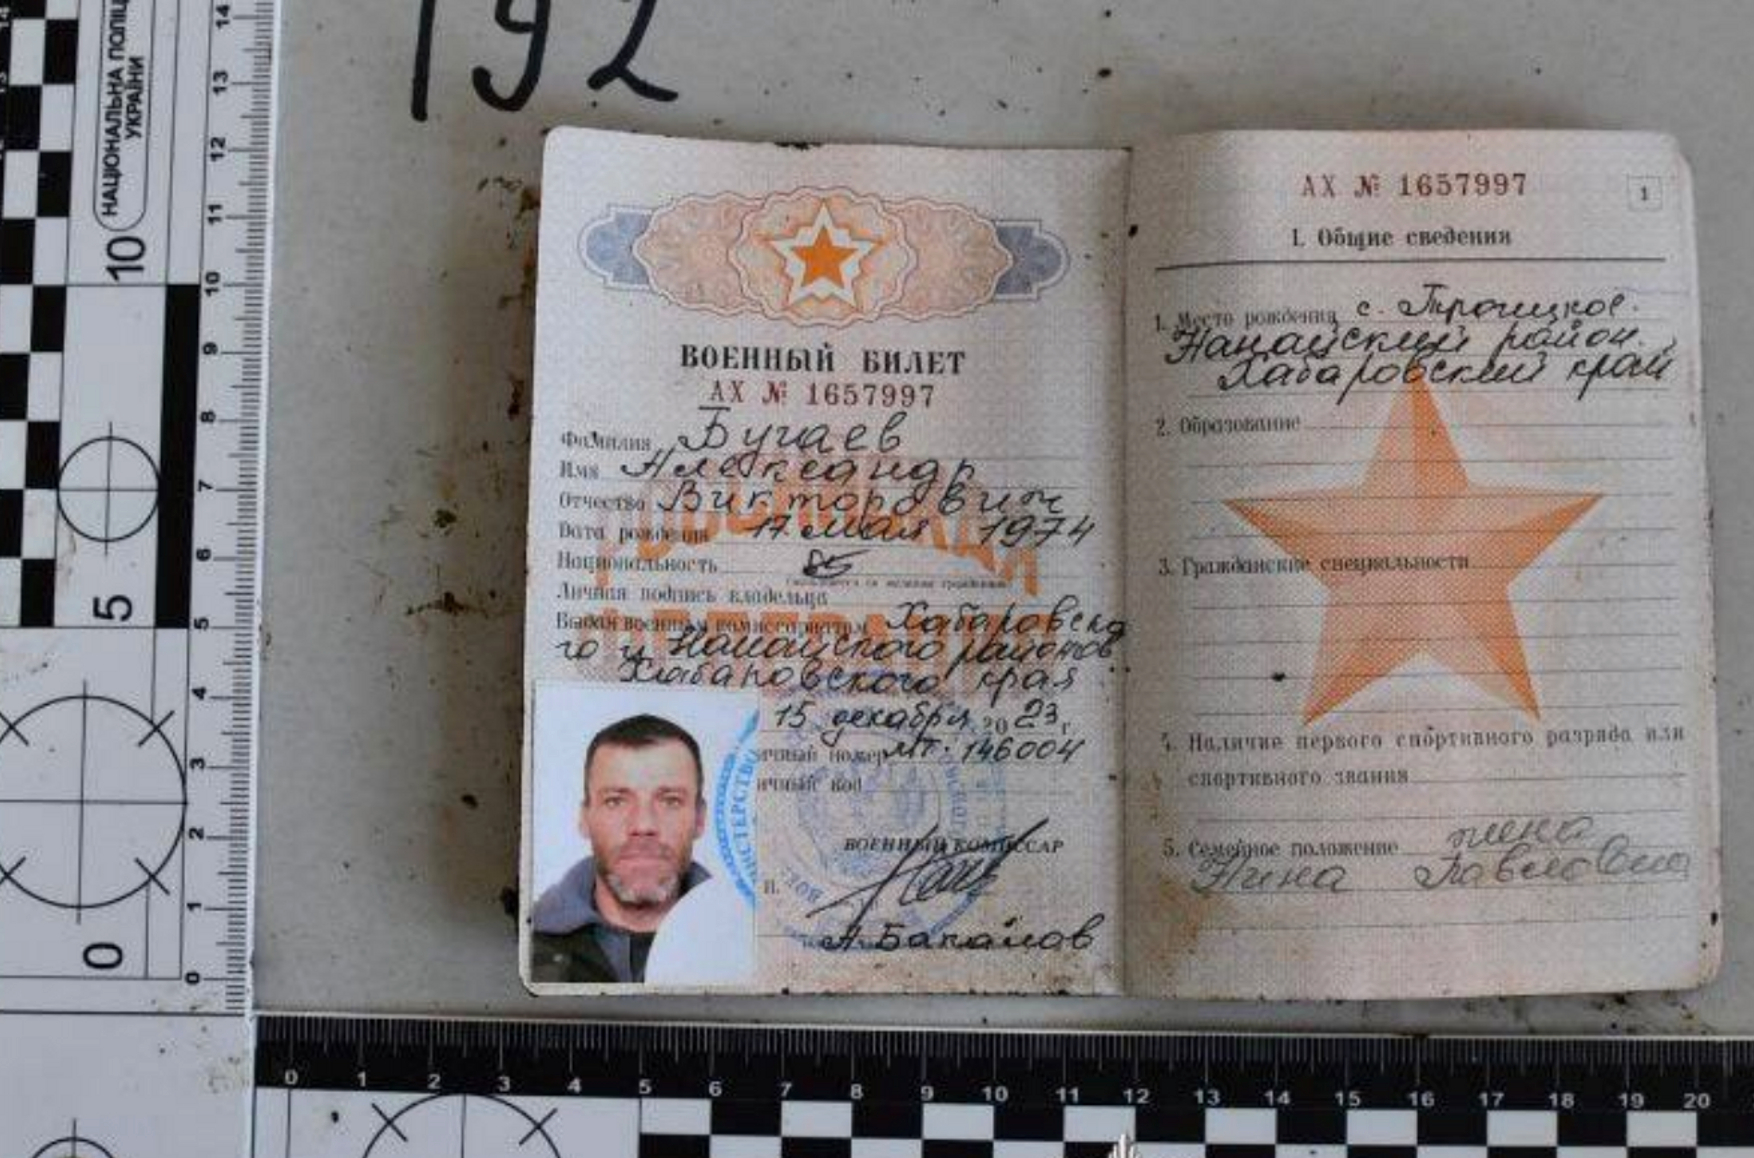 192
НАЦІОНАЛЬНА ПОЛІЦІЯ
УКРАЇНИ
14
13
12
11
10
9
8
7
6
5
4
3
2
1
0
10
5
0
ВОЕННЫЙ БИЛЕТ
АХ № 1657997
Фамилия Бугаев
Имя Александр
Отчество Викторович
Дата рождения 17 мая 1974
Национальность
Личная подпись владельца
Выдан военным комиссариатом Хабаровско
го и Нанайского районов
Хабаровского края
15 декабря 2023 г.
ичный номер МТ-146004
ичный код
ИНИСТЕРСТВО
ВОЕННЫЙ КОМИССАР
П.
А. Бакалов
АХ № 1657997
1
I. Общие сведения
1. Место рождения с. Троицкое.
Нанайский район.
Хабаровский край
2. Образование
3. Гражданские специальности
4. Наличие первого спортивного разряда или
спортивного звания
5. Семейное положение жена
Нина Павловна
0 1 2 3 4 5 6 7 8 9 10 11 12 13 14 15 16 17 18 19 20